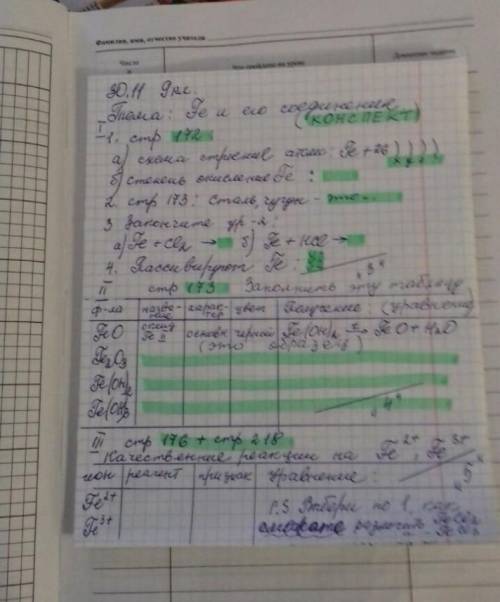 Фамилия, имя, отчество учителя
Число
30.11 9 кл.
Тема: Fe и его соединения
(КОНСПЕКТ)
I
1. стр 172
а) схема строения атома: Fe +26 ) ) ) )
б) степень окисления Fe :
2. стр 173: сталь, чугун - это...
3 Закончите ур-я:
а) Fe + Cl2 → б) Fe + HCl →
4. Пассивируют Fe :
"3"
II стр 173 Заполнить эту таблицу
ф-ла назва-ние харак-тер цвет Получение: (уравнение)
FeO оксид Fe II основн черный Fe(OH)2 t→ FeO + H2O
(это образец)
Fe2O3
Fe(OH)2
Fe(OH)3
"4"
III стр 176 + стр 218
Качественные реакции на Fe2+, Fe3+
ион реагент признак Уравнение :
"5"
Fe2+
P.S Выбери по 1, как
Fe3+
различить